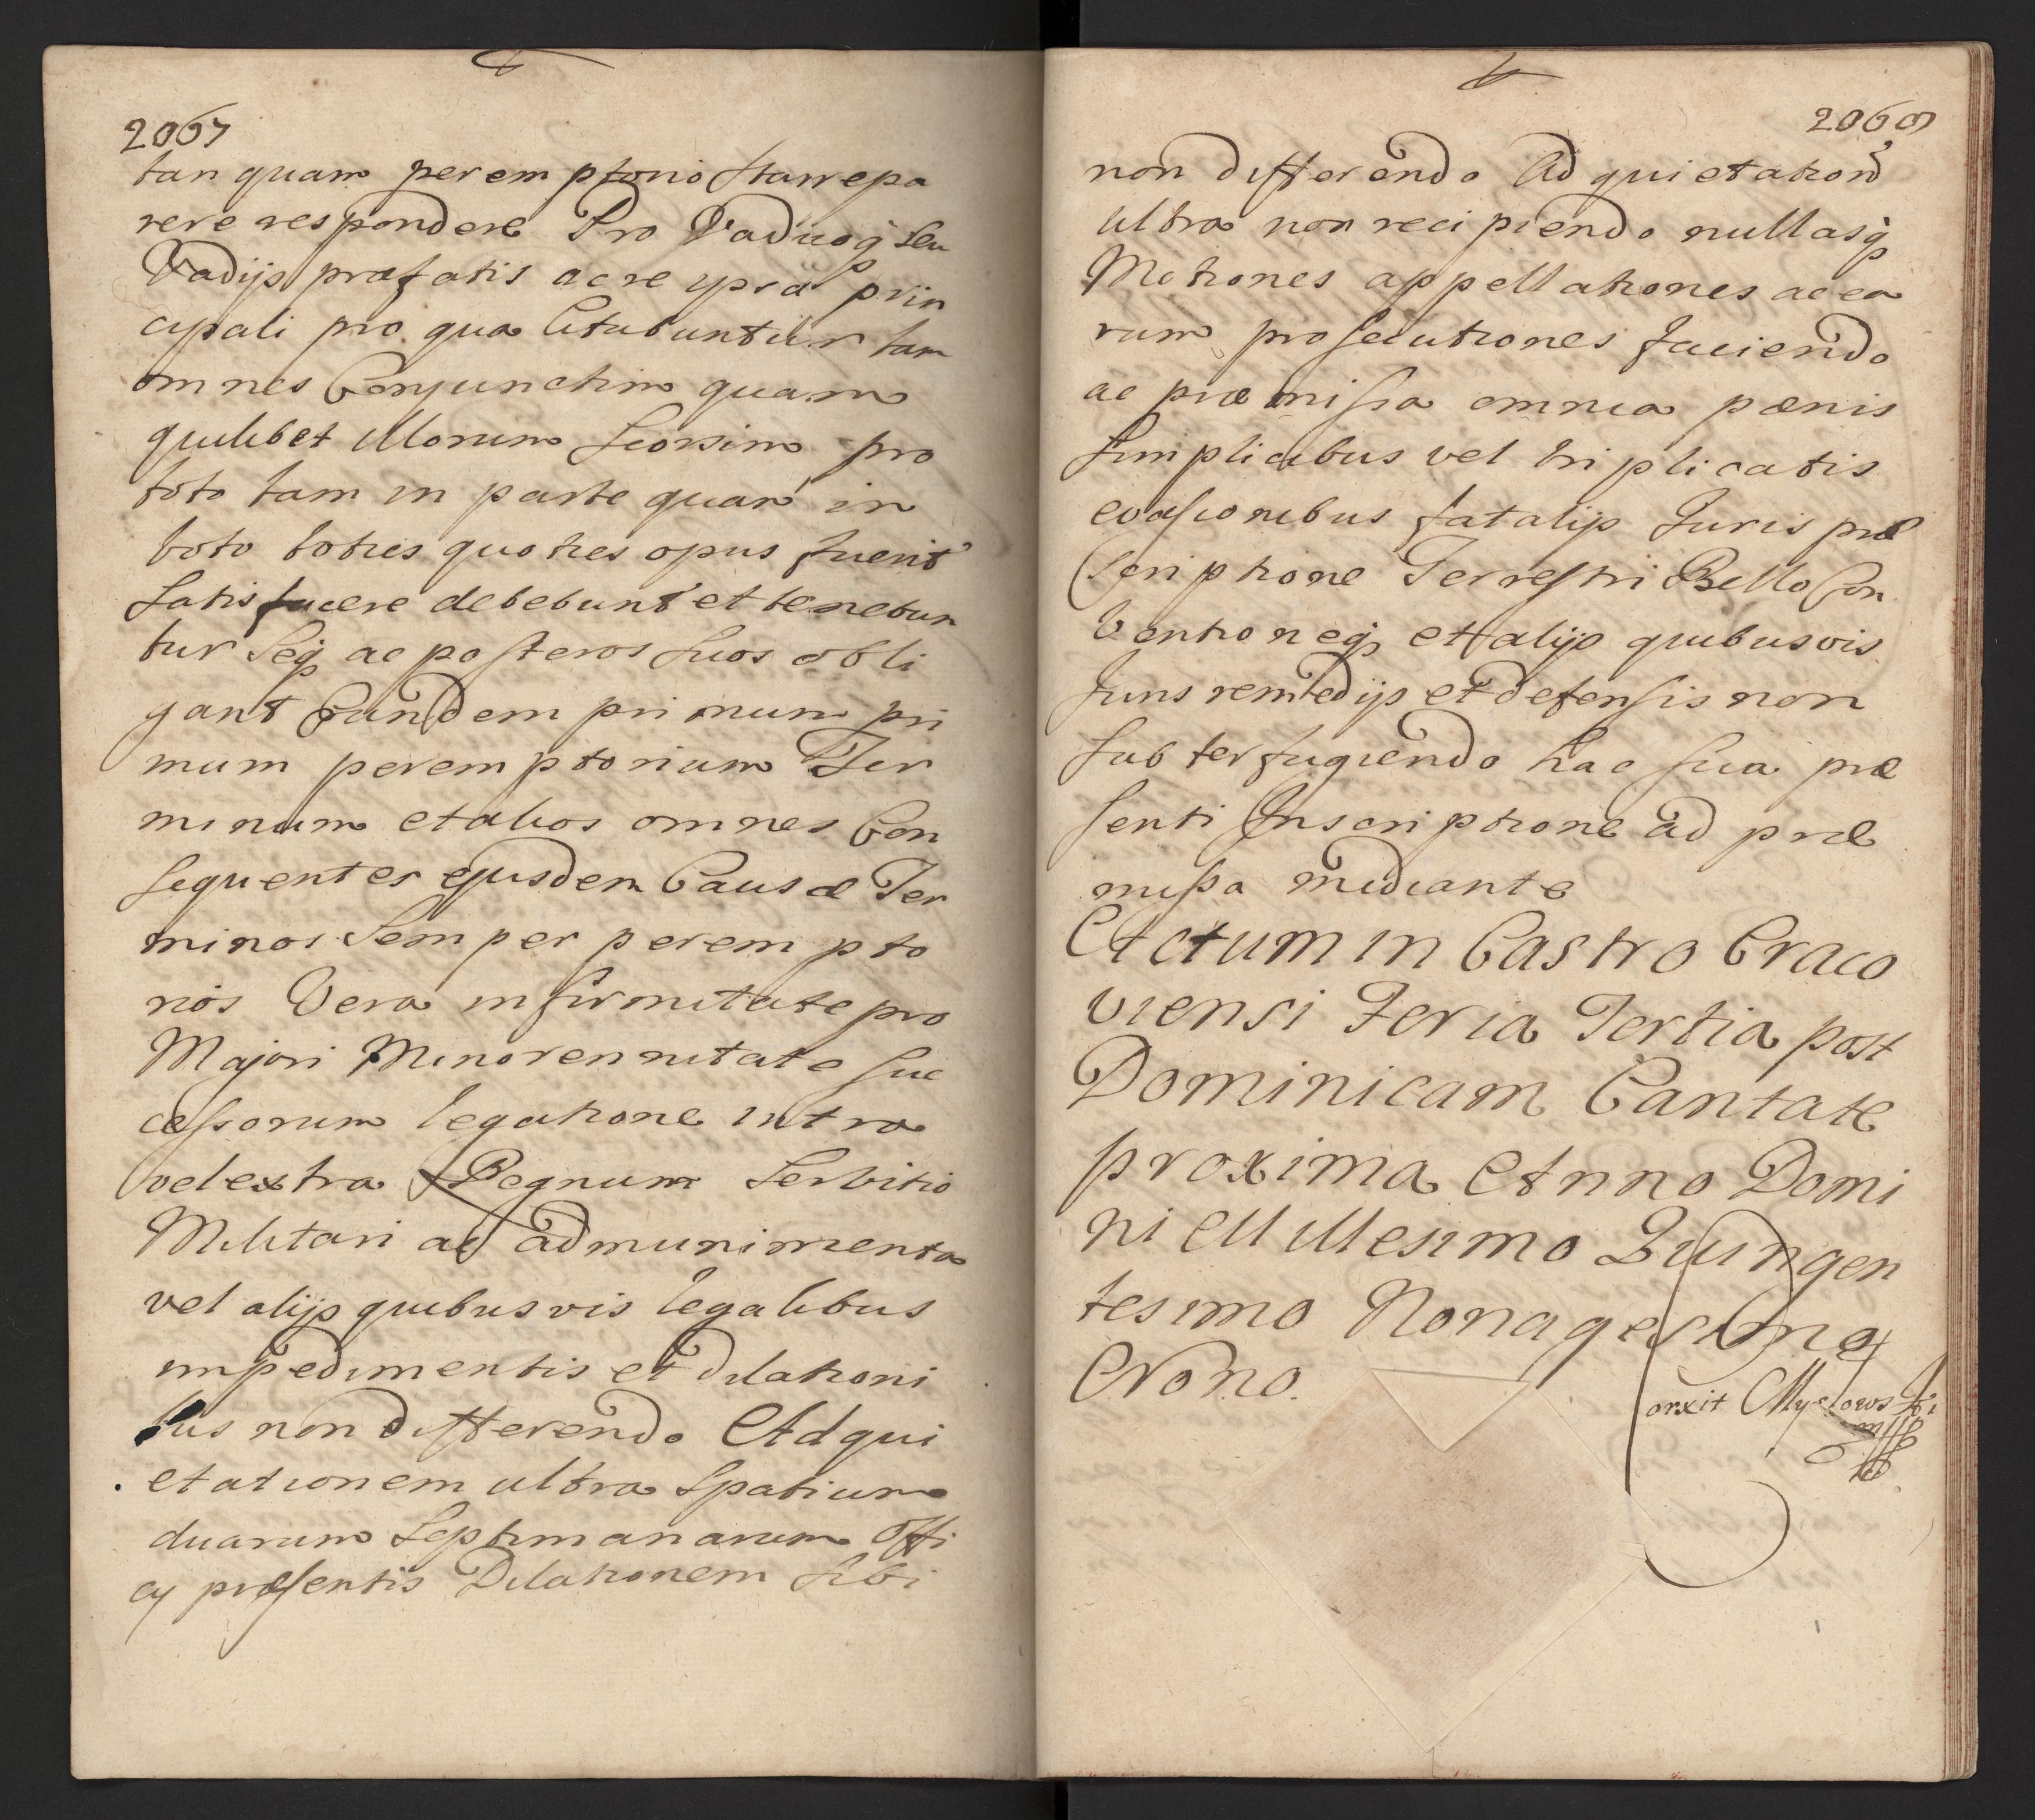 2067
tanquam peremptorio stare pa
rere respondere Pro Vadioq3 seu
Vadijs præfatis ac re ipsa prin
cipali pro qua Citabuntur tam
omnes Conjunctim quam
quilibet illorum seorsim pro
toto tam in parte quam in
toto toties quoties opus fuerit
satisfacere debebunt et tenebun
tur Seq3 ac posteros suos obli
gant Eundem primum pri
mum peremptorium Ter
minum et alios omnes Con
sequentes ejusdem Causæ Ter
minos Semper perempto
rios Vera infirmitate pro
Majori Minorennitate suc
cessorum legatione intra
vel extra Regnum Servitio
Militari ac ad munimenta
vel alijs quibusvis legalibus
impedimentis et dilationi
bus non differendo Ad qui
etationem ultra Spatium
duarum Septimanarum Offi
cij præsentis Dilationem sibi
2069
non differendo Ad quietation
ultra non recipiendo nullasq3
Motiones appellationes ac ea
rum prosecutiones faciendo
ac præmissa omnia pænis
simplicibus vel triplicatis
evasionibus fatalijs Juris præ
scriptione Terrestri Bello Con
ventioneq3 et alijs quibusvis
Juris remedijs et defensis non
subterfugiendo hac sua præ
senti Inscriptione ad præ
missa mediante
Actum in Castro Craco
viensi Feria Tertia post
Dominicam Cantate
proxima Anno Domi
ni Millesimo Quingen
tesimo Nonagesimo
Nono.
orxit Myslowski